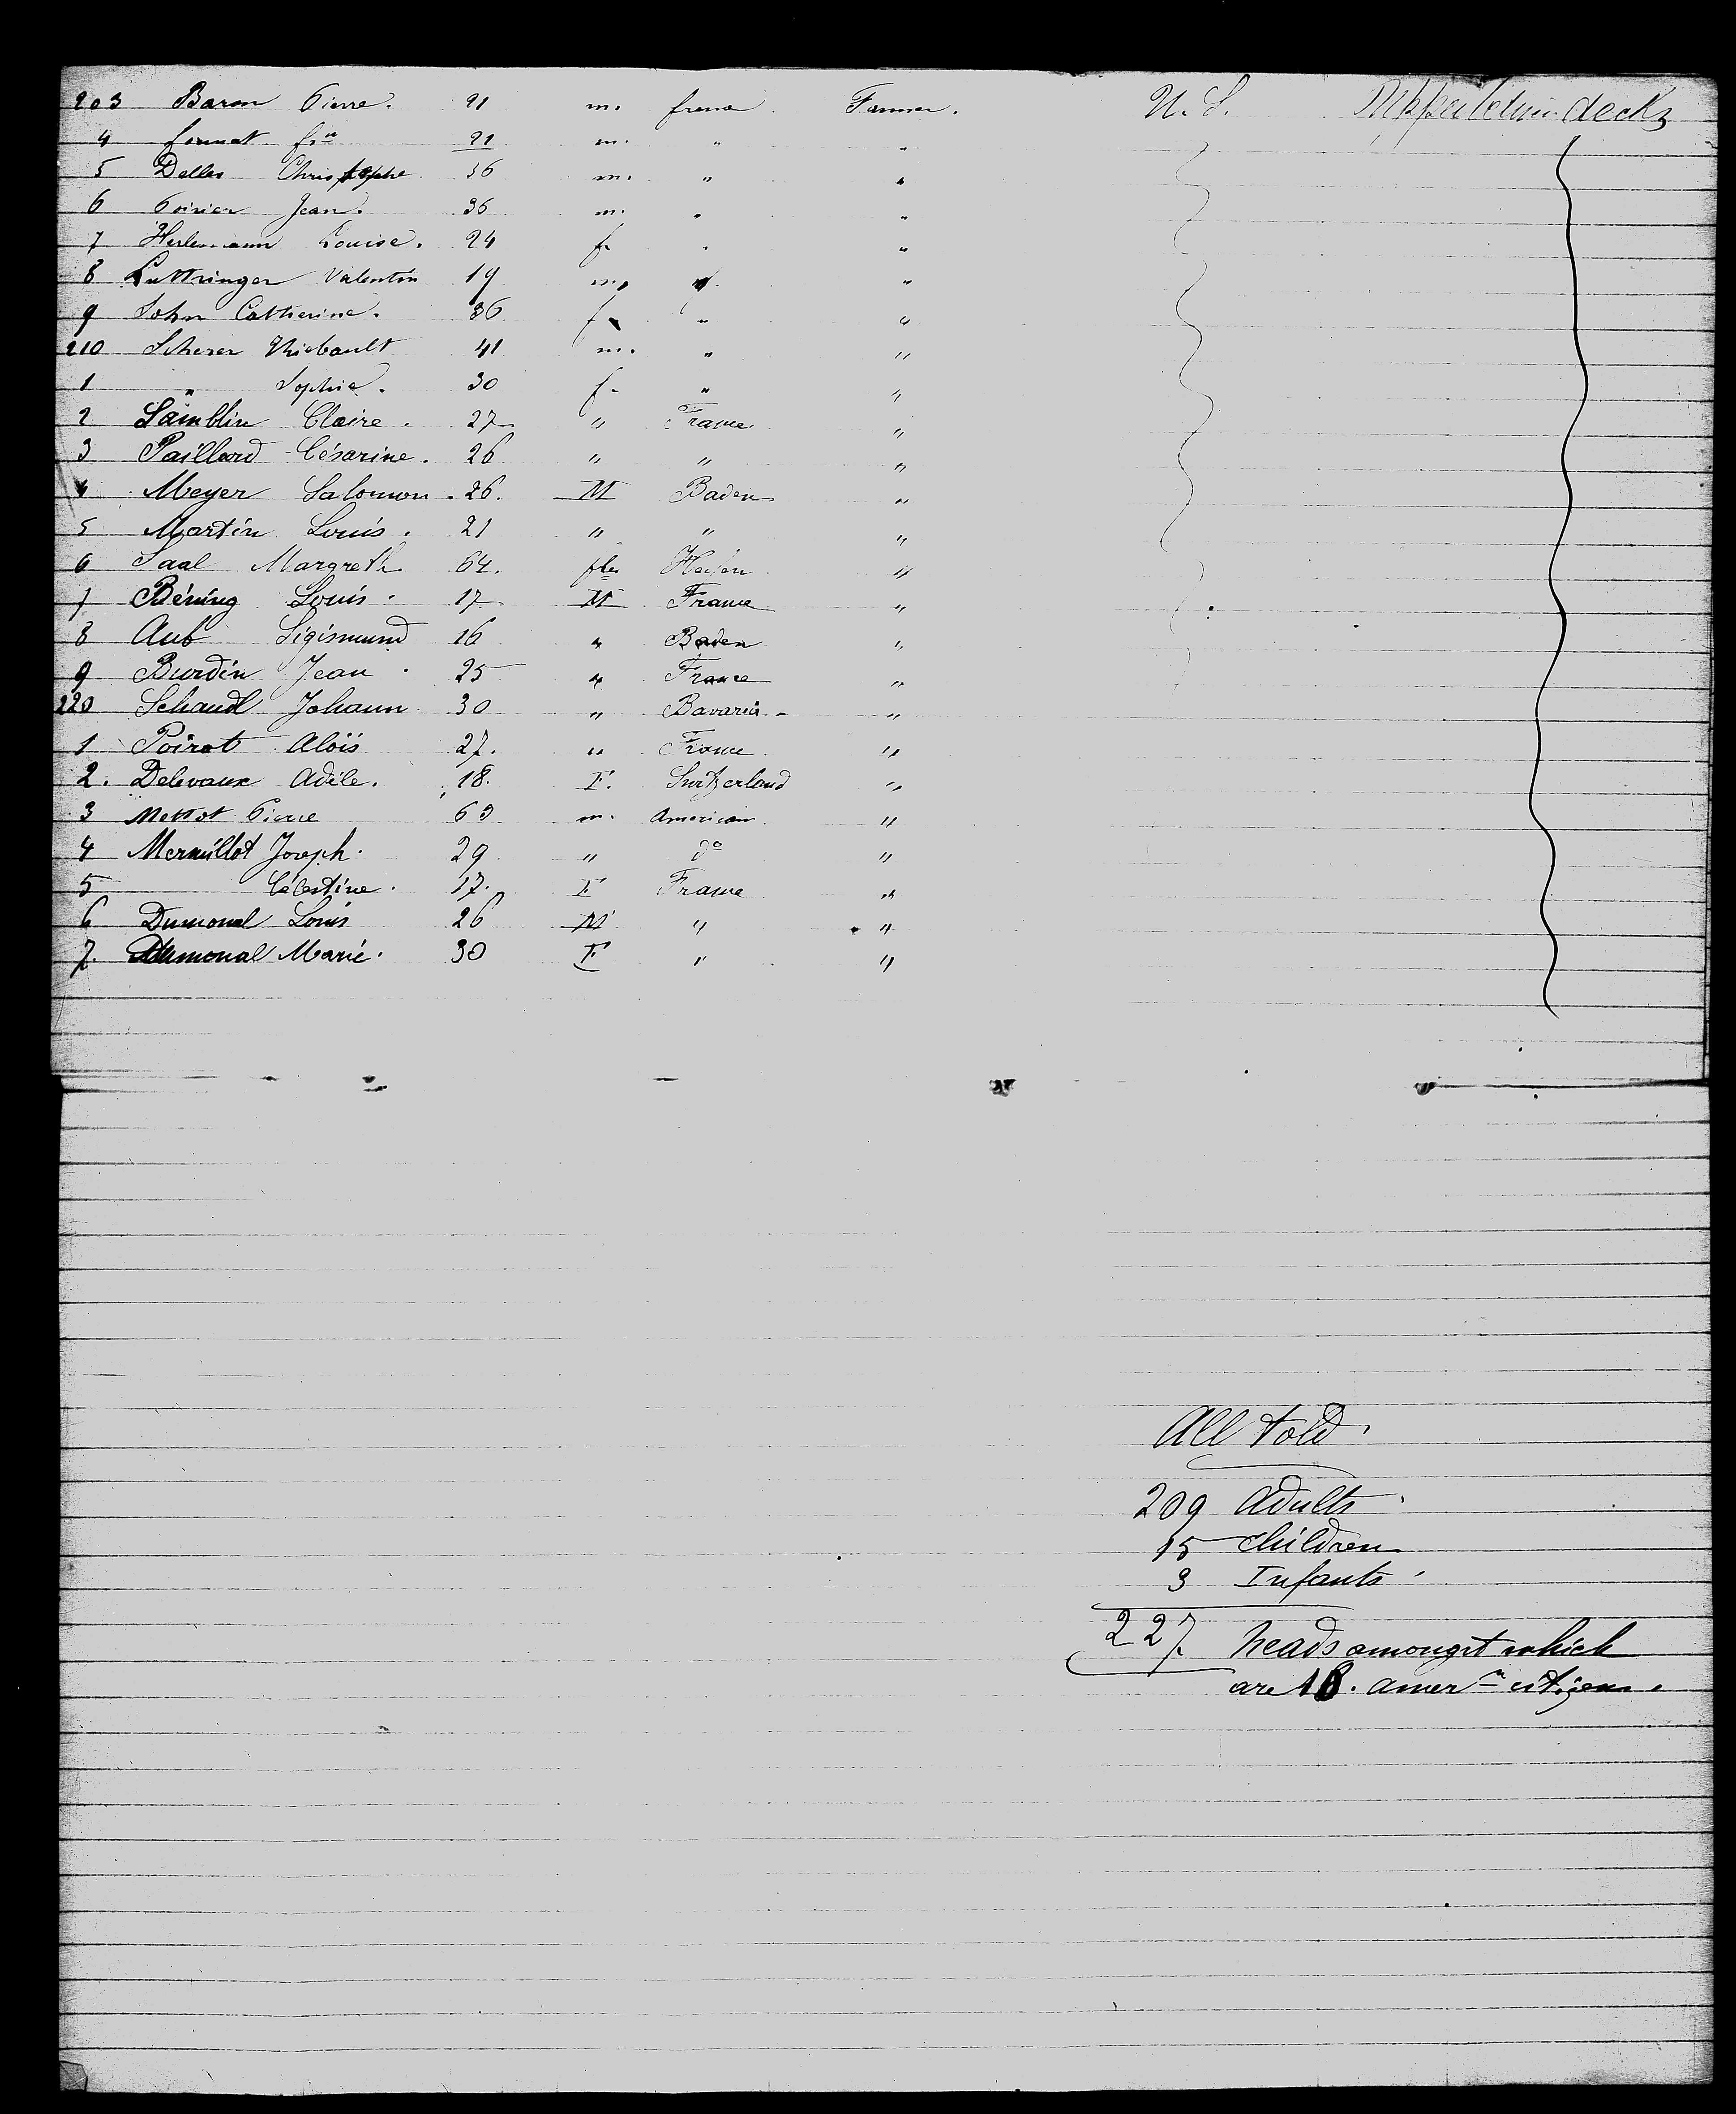 203 Baron Pierre. 21 m. france Farmer. U. S. Upper between decks
4 fr⁠ⁿ 21 m. " "
5 Delles Christophe 36 m. " "
6 Poirier Jean. 36 m. " "
7 Louise. 24 f. " "
8 Luttringer Valentin 19 m. " "
9 John Catherine. 36 f. " "
210 Scherer Thiebault 41 m. " "
1 " Sophie. 30 f. " "
2 Lamblin Claire. 27 " France "
3 Paillard Césarine. 26 " " "
4 Meyer Salomon. 26. M Baden "
5 Martin Louis. 21 " " "
6 Saal Margreth 64. fle "
7 Béning Louis. 17 M France "
8 Aub Sigismund 16 " Baden "
9 Burdin Jean 25 " France "
220 Schaudl Johann 30 " Bavaria "
1 Poirot Aloïs 27. " France "
2. Delevaux Adèle. 18. F. Switzerland "
3 Mettot Pierre 63 m. American "
4 Mermillot Joseph. 29 " do "
5 Célestine. 17. F France "
6 Dumonal Louis 26 M " "
7. Dumonal Marie. 30 F " "
All told
209 Adults
15 Children
3 Infants
227 heads amongst which
are 18. amerⁿ citizens.